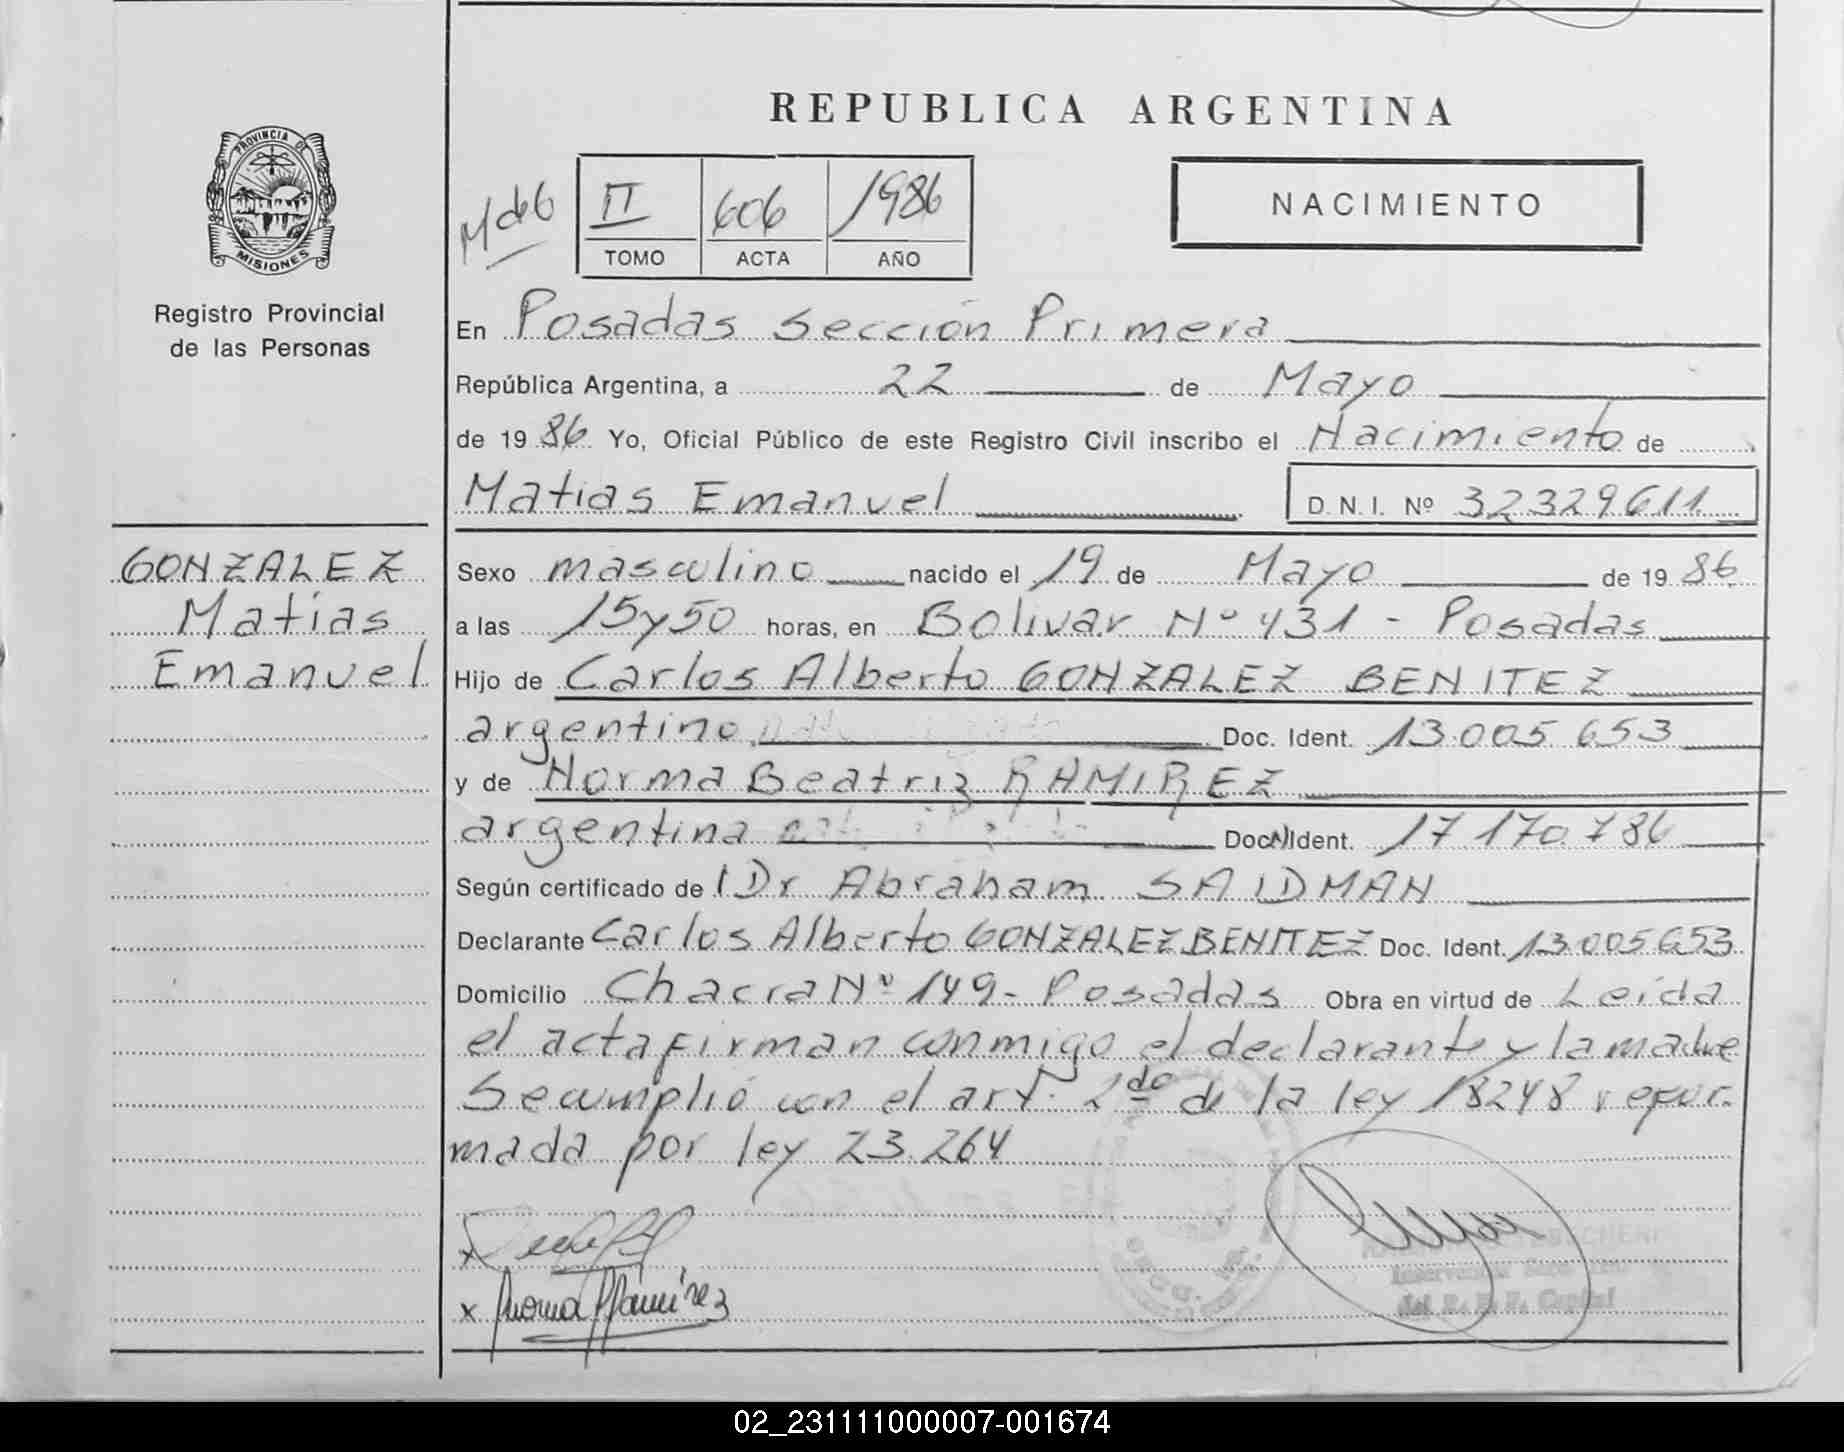 REPUBLICA ARGENTINA
PROVINCIA DE
MISIONES
Registro Provincial
de las Personas
M de 6
II 606 1986
TOMO ACTA AÑO
NACIMIENTO
En Posadas Sección Primera
República Argentina, a 22 de Mayo
de 19 86 Yo, Oficial Público de este Registro Civil inscribo el Nacimiento de
Matias Emanuel D.N.I. Nº 32329611
GONZALEZ
Matias
Emanuel
Sexo masculino nacido el 19 de Mayo de 19 86
a las 15 y 50 horas, en Bolivar Nº 431 - Posadas
Hijo de Carlos Alberto GONZALEZ BENITEZ
argentino Doc. Ident. 13.005.653
y de Norma Beatriz RAMIREZ
argentina Doc. Ident. 17.170.786
Según certificado de Dr Abraham SAIDMAN
Declarante Carlos Alberto GONZALEZ BENITEZ Doc. Ident. 13.005.653
Domicilio Chacra Nº 149 - Posadas Obra en virtud de Leida
el acta firman conmigo el declarante y la madre
Se cumplió con el art. 2do de la ley 18248 refor-
mada por ley 23.264
x
x Norma Ramírez
del R. P. P. Capital
02_231111000007-001674